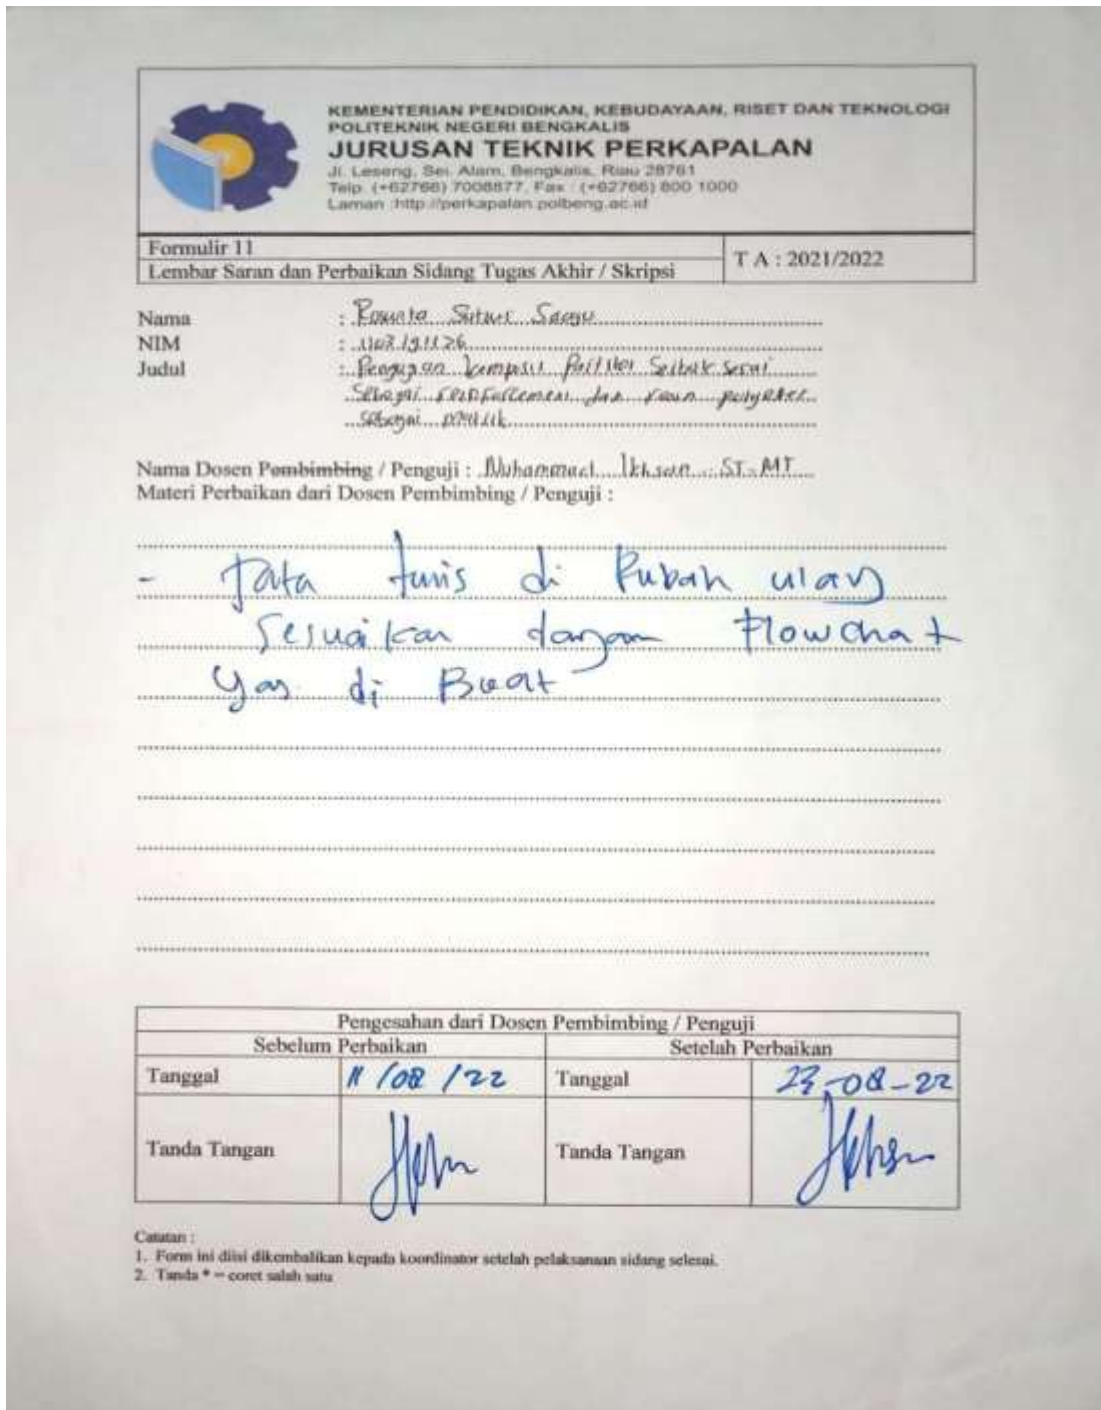 KEMENTERIAN PENDIDIKAN, KEBUDAYAAN, RISET DAN TEKNOLOGI
POLITEKNIK NEGERI BENGKALIS
JURUSAN TEKNIK PERKAPALAN
Jl. Leseng, Sei. Alam, Bengkalis, Riau 28761
Telp. (+62766) 7008877, Fax : (+62766) 800 1000
Laman :http://perkapalan.polbeng.ac.id
Formulir 11
Lembar Saran dan Perbaikan Sidang Tugas Akhir / Skripsi
T A : 2021/2022
Nama :
NIM :
Judul : Pengujian Partikel Serbuk
Sebagai reinforcement dan
sebagai
Nama Dosen Pembimbing / Penguji : Muhammad Ikhsan ST. MT
Materi Perbaikan dari Dosen Pembimbing / Penguji :
- Tata tunis di Rubah ulang
Sesuaikan dangan Flowchat
yan di Buat
Pengesahan dari Dosen Pembimbing / Penguji
Sebelum Perbaikan Setelah Perbaikan
Tanggal 11/08/22 Tanggal 23-08-22
Tanda Tangan Tanda Tangan
Catatan :
1. Form ini diisi dikembalikan kepada koordinator setelah pelaksanaan sidang selesai.
2. Tanda * = coret salah satu